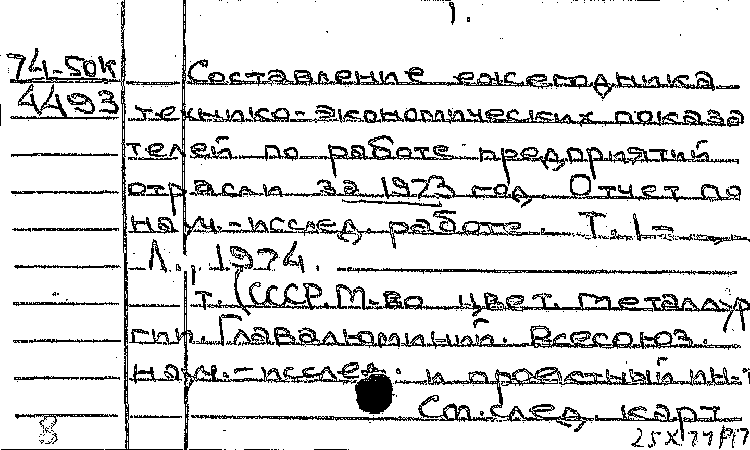 1.
74-50к Составление ежегодника
4493 технико-экономических показа
телей по работе предприятий
отрасли за 1973 год. Отчет по
науч.-исслед. работе. Т. 1 –
Л., 1974.
т. (СССР. М-во цвет. металлур
гии. Главалюминий. Всесоюз.
науч.-исслед. и проектный ин-т
См. след. карт
8